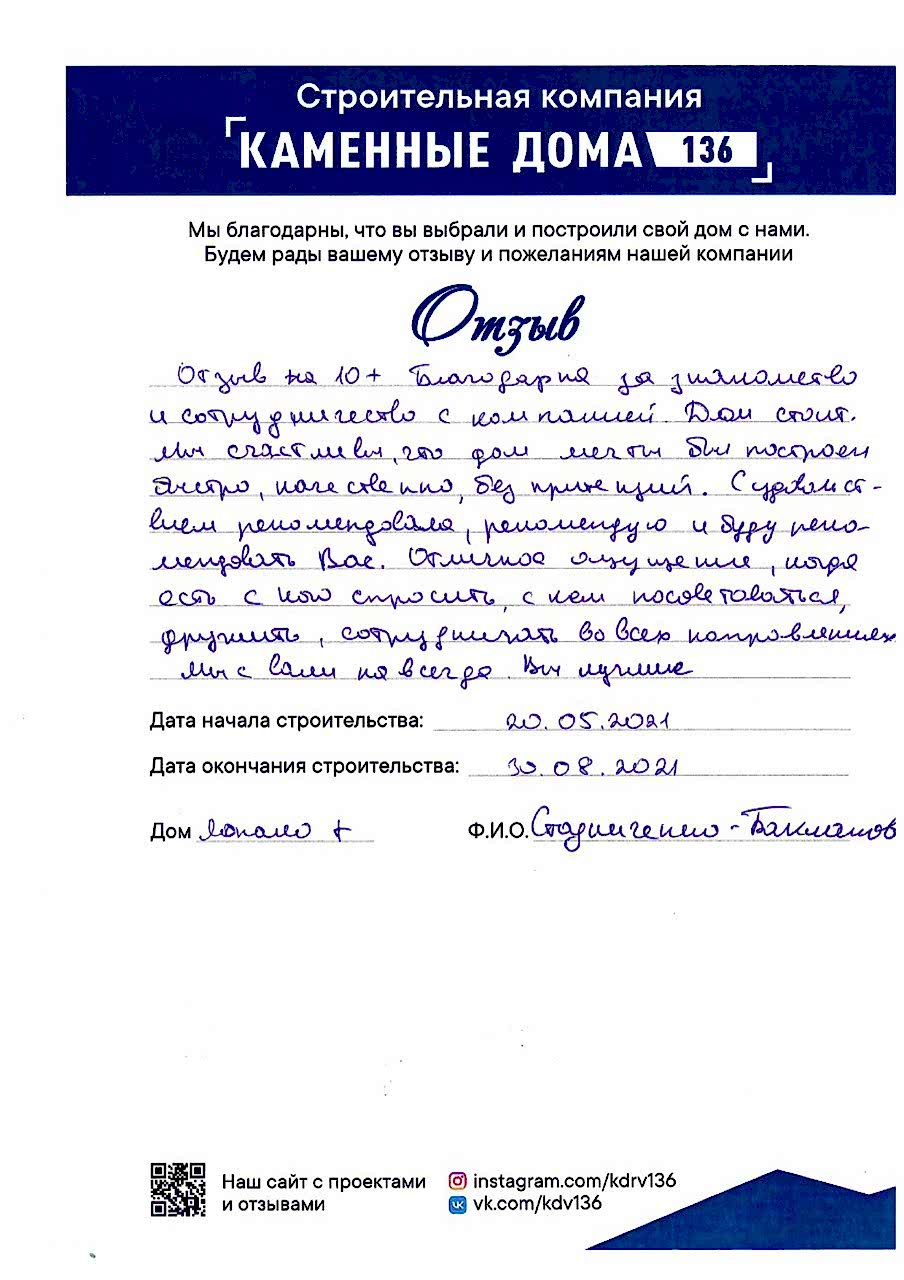 Строительная компания
КАМЕННЫЕ ДОМА 136
Мы благодарны, что вы выбрали и построили свой дом с нами.
Будем рады вашему отзыву и пожеланиям нашей компании
Отзыв
Отзыв на 10+ Благодарна за знакомство
и сотрудничество с компанией. Дом стоит.
Мы счастливы, что дом мечты был построен
быстро, качественно, без претензий. С удовольст-
вием рекомендовала, рекомендую и буду реко-
мендовать Вас. Отличное ощущение, когда
есть с кого спросить, с кем посоветоваться,
дружить, сотрудничать во всех направлениях
Мы с вами навсегда. Вы лучшие
Дата начала строительства: 20.05.2021
Дата окончания строительства: 30.08.2021
Дом +
Ф.И.О.
Наш сайт с проектами
и отзывами
instagram.com/kdrv136
vk.com/kdv136